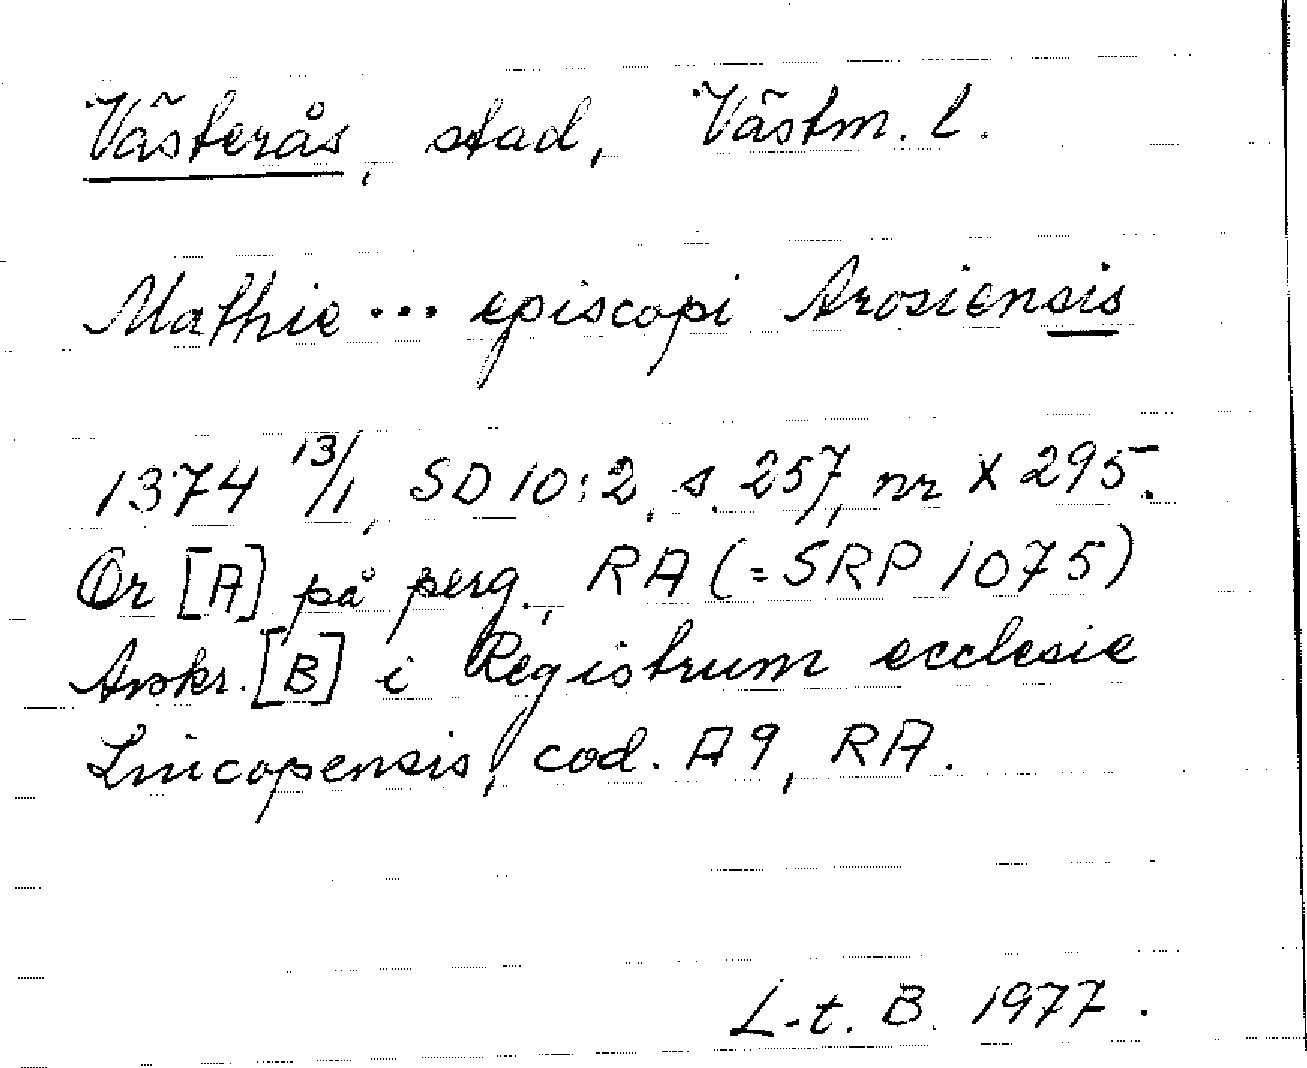 Västerås, stad, Västm. l.
Mathie ... episcopi Arosiensis
1374 13/1, SD 10:2, s. 257, nr X 295.
Or [A] på perg., RA (=SRP 1075)
Avskr. [B] i Registrum ecclesie
Lincopensis, cod. A 9, RA.
L-t. B. 1977.